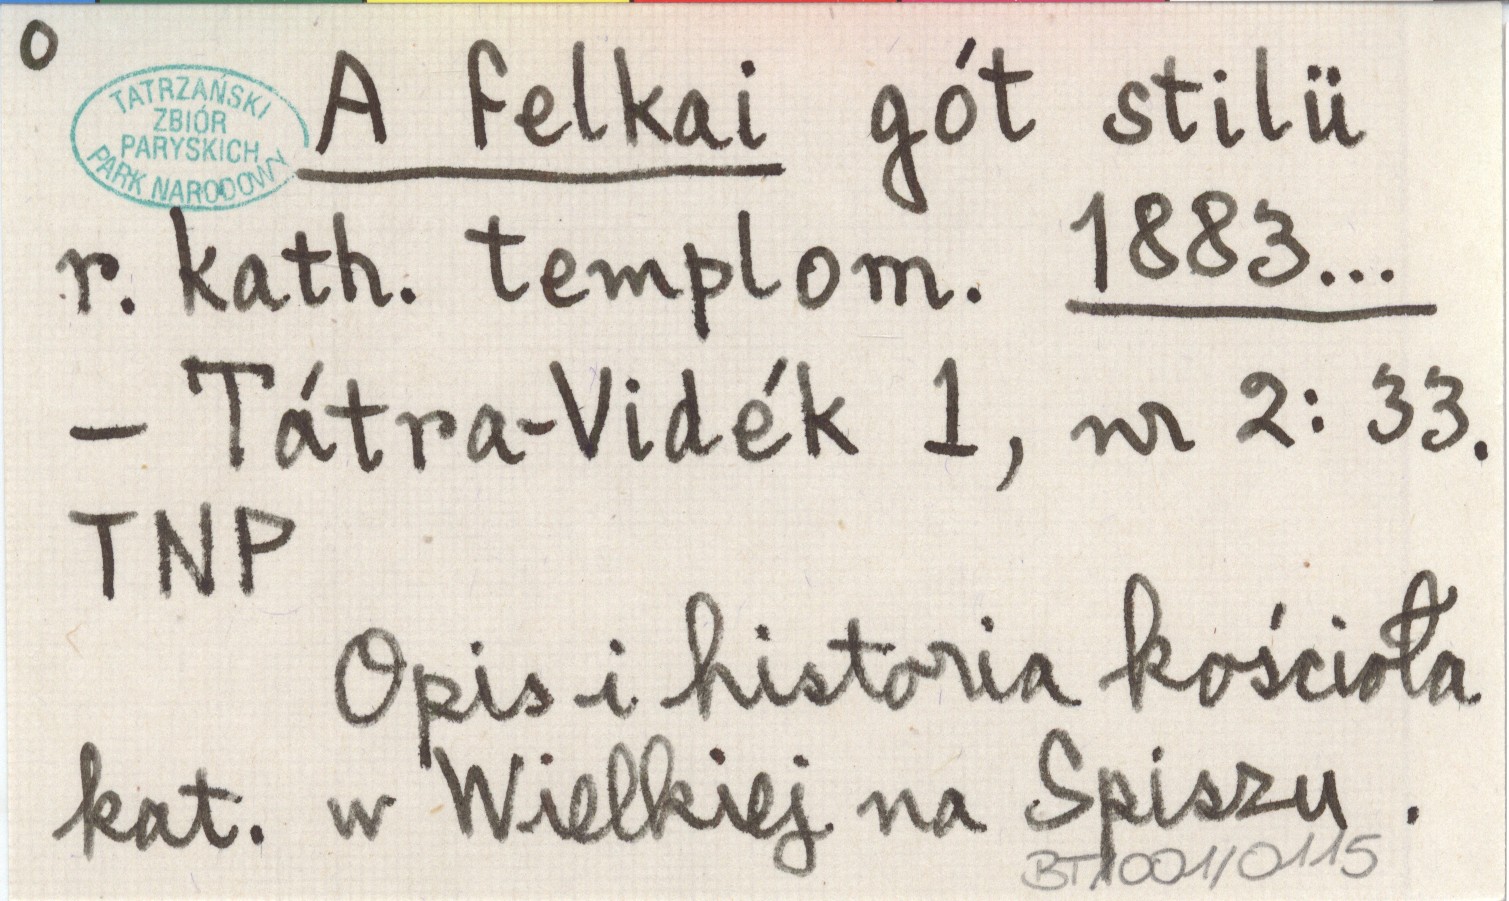 O
TATRZAŃSKI
ZBIÓR
PARYSKICH
PARK NARODOWY
A felkai gót stilü
r. kath. templom. 1883...
– Tátra-Vidék 1, nr 2: 33.
TNP
Opis i historia kościoła
kat. w Wielkiej na Spiszu.
BT/001/0115